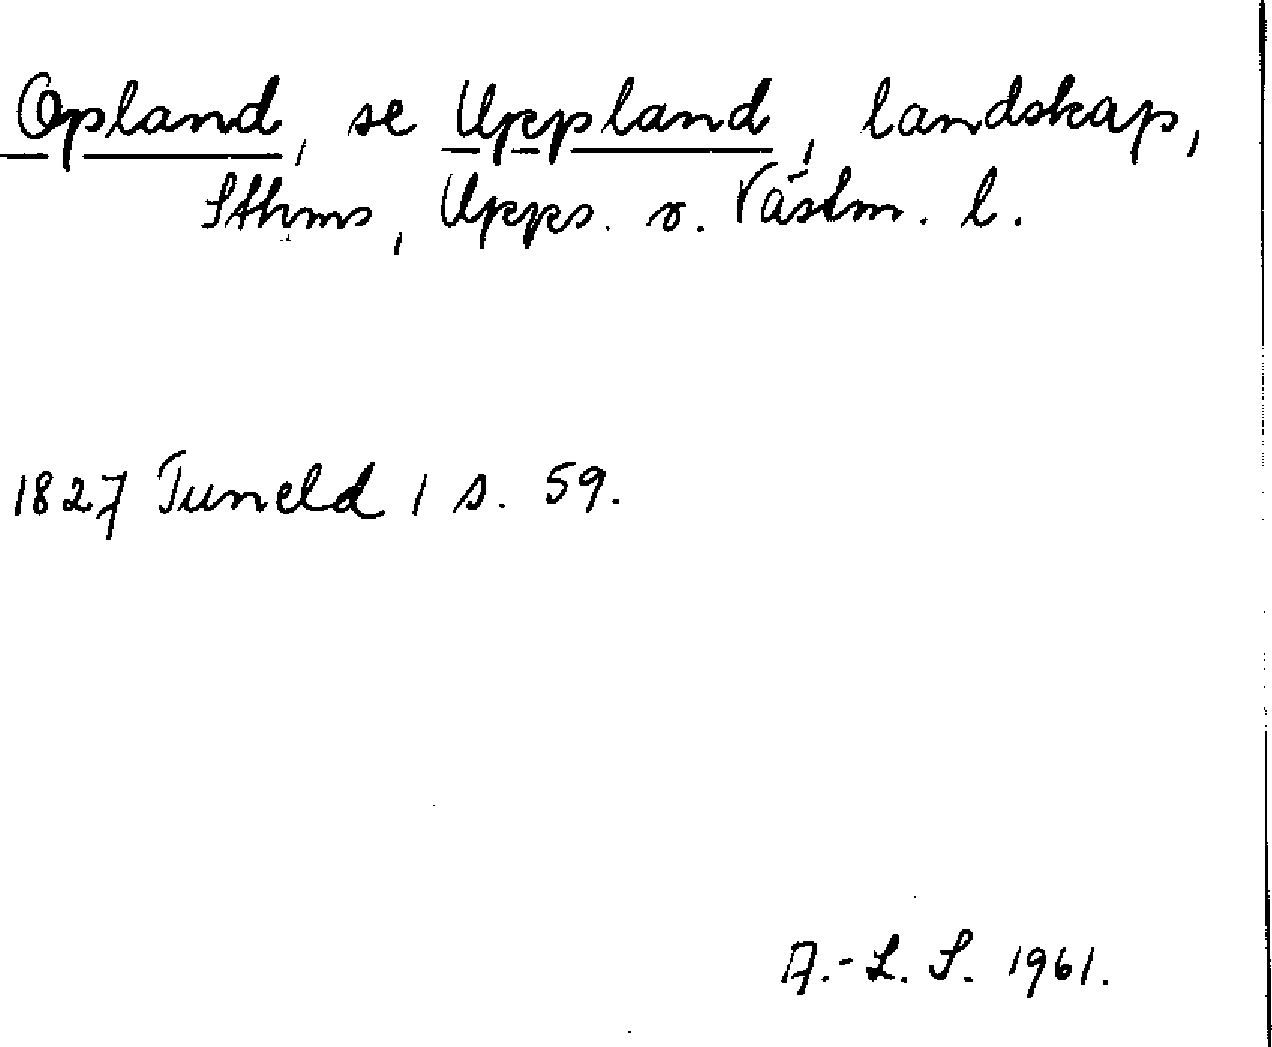 Opland, se Uppland, landskap,
Sthms, Upps. o. Västm. l.
1827 Tuneld 1 s. 59.
A.-L. S. 1961.